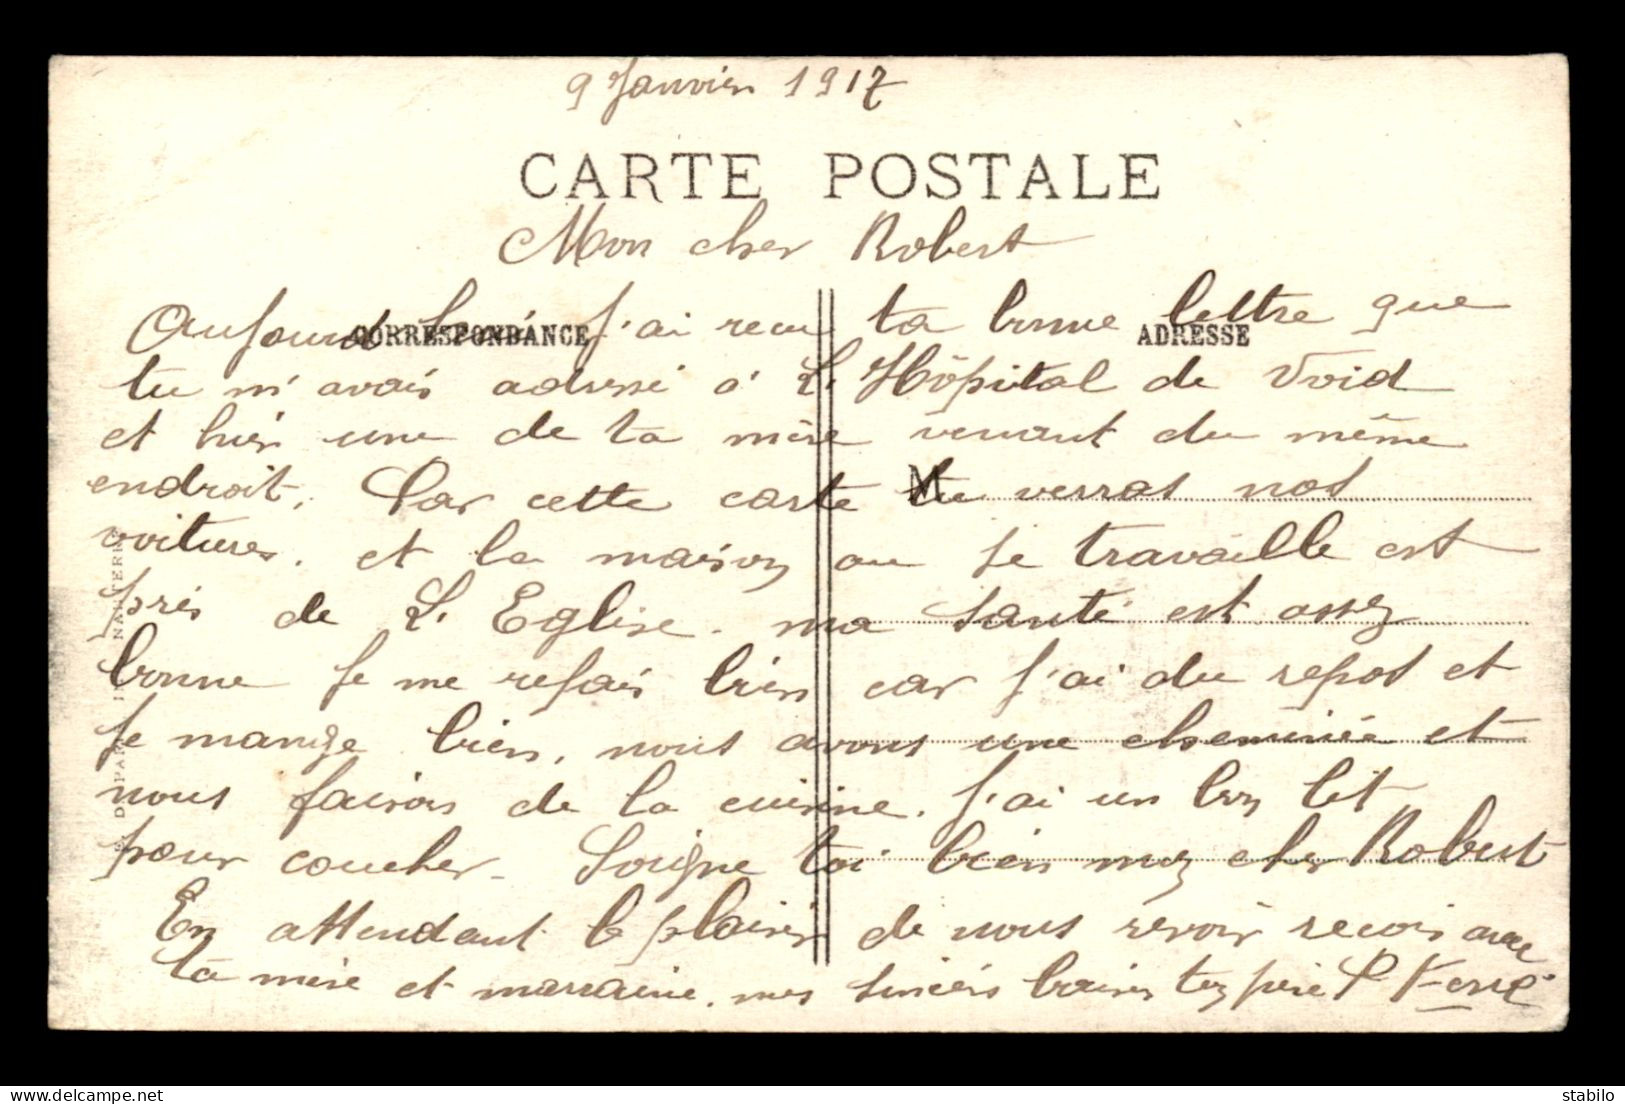 9 Janvier 1917
CARTE POSTALE
Mon cher Robert
CORRESPONDANCE
ADRESSE
Aujourd hui j'ai recu ta bonne lettre que
tu m'avais adressé à L. Hôpital de Void
et hier une de ta mère venant du même
endroit. Par cette carte tu verras nos
M
voitures. et la maison ou je travaille est
près de L. Eglise. ma santé est assez
bonne je me refais bien car j'ai du repos et
je mange bien. nous avons une cheminée et
nous faisons de la cuisine. j'ai un bon lit
pour coucher. Soigne toi bien mon cher Robert
En attendant le plaisir de nous revoir recois avec
ta mère et marraine. mes sincères baisers ton père P
E. LE DELEY PARIS NANTERRE
stabilo
delcampe.net